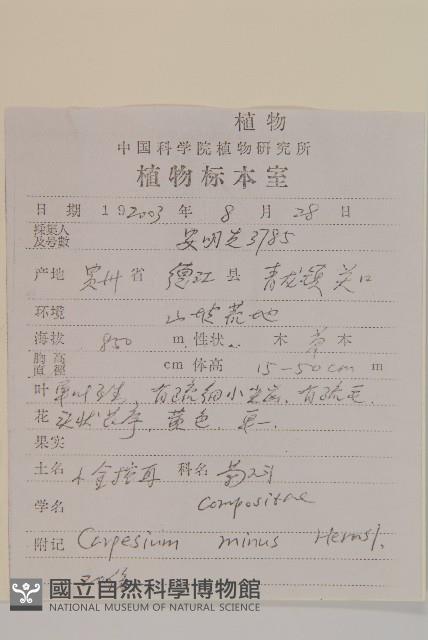 植物
中国科学院植物研究所
植物标本室
日 期 192003 年 8 月 28 日
採集人及号數 安明先 3785
产地 贵州 省 德江 县 青龙镇 关口
环境 山坡荒地
海拔 850 m 性状 木 草 本
胸高直徑 cm 体高 15-50cm m
叶 单叶互生, 有疏细小尖齿, 有疏毛.
花 头状花序, 黄色. 单一.
果实
土名 小金挖耳 科名 菊科
学名 Compositae
附记 Carpesium minus Hemsl.
國立自然科學博物館
NATIONAL MUSEUM OF NATURAL SCIENCE